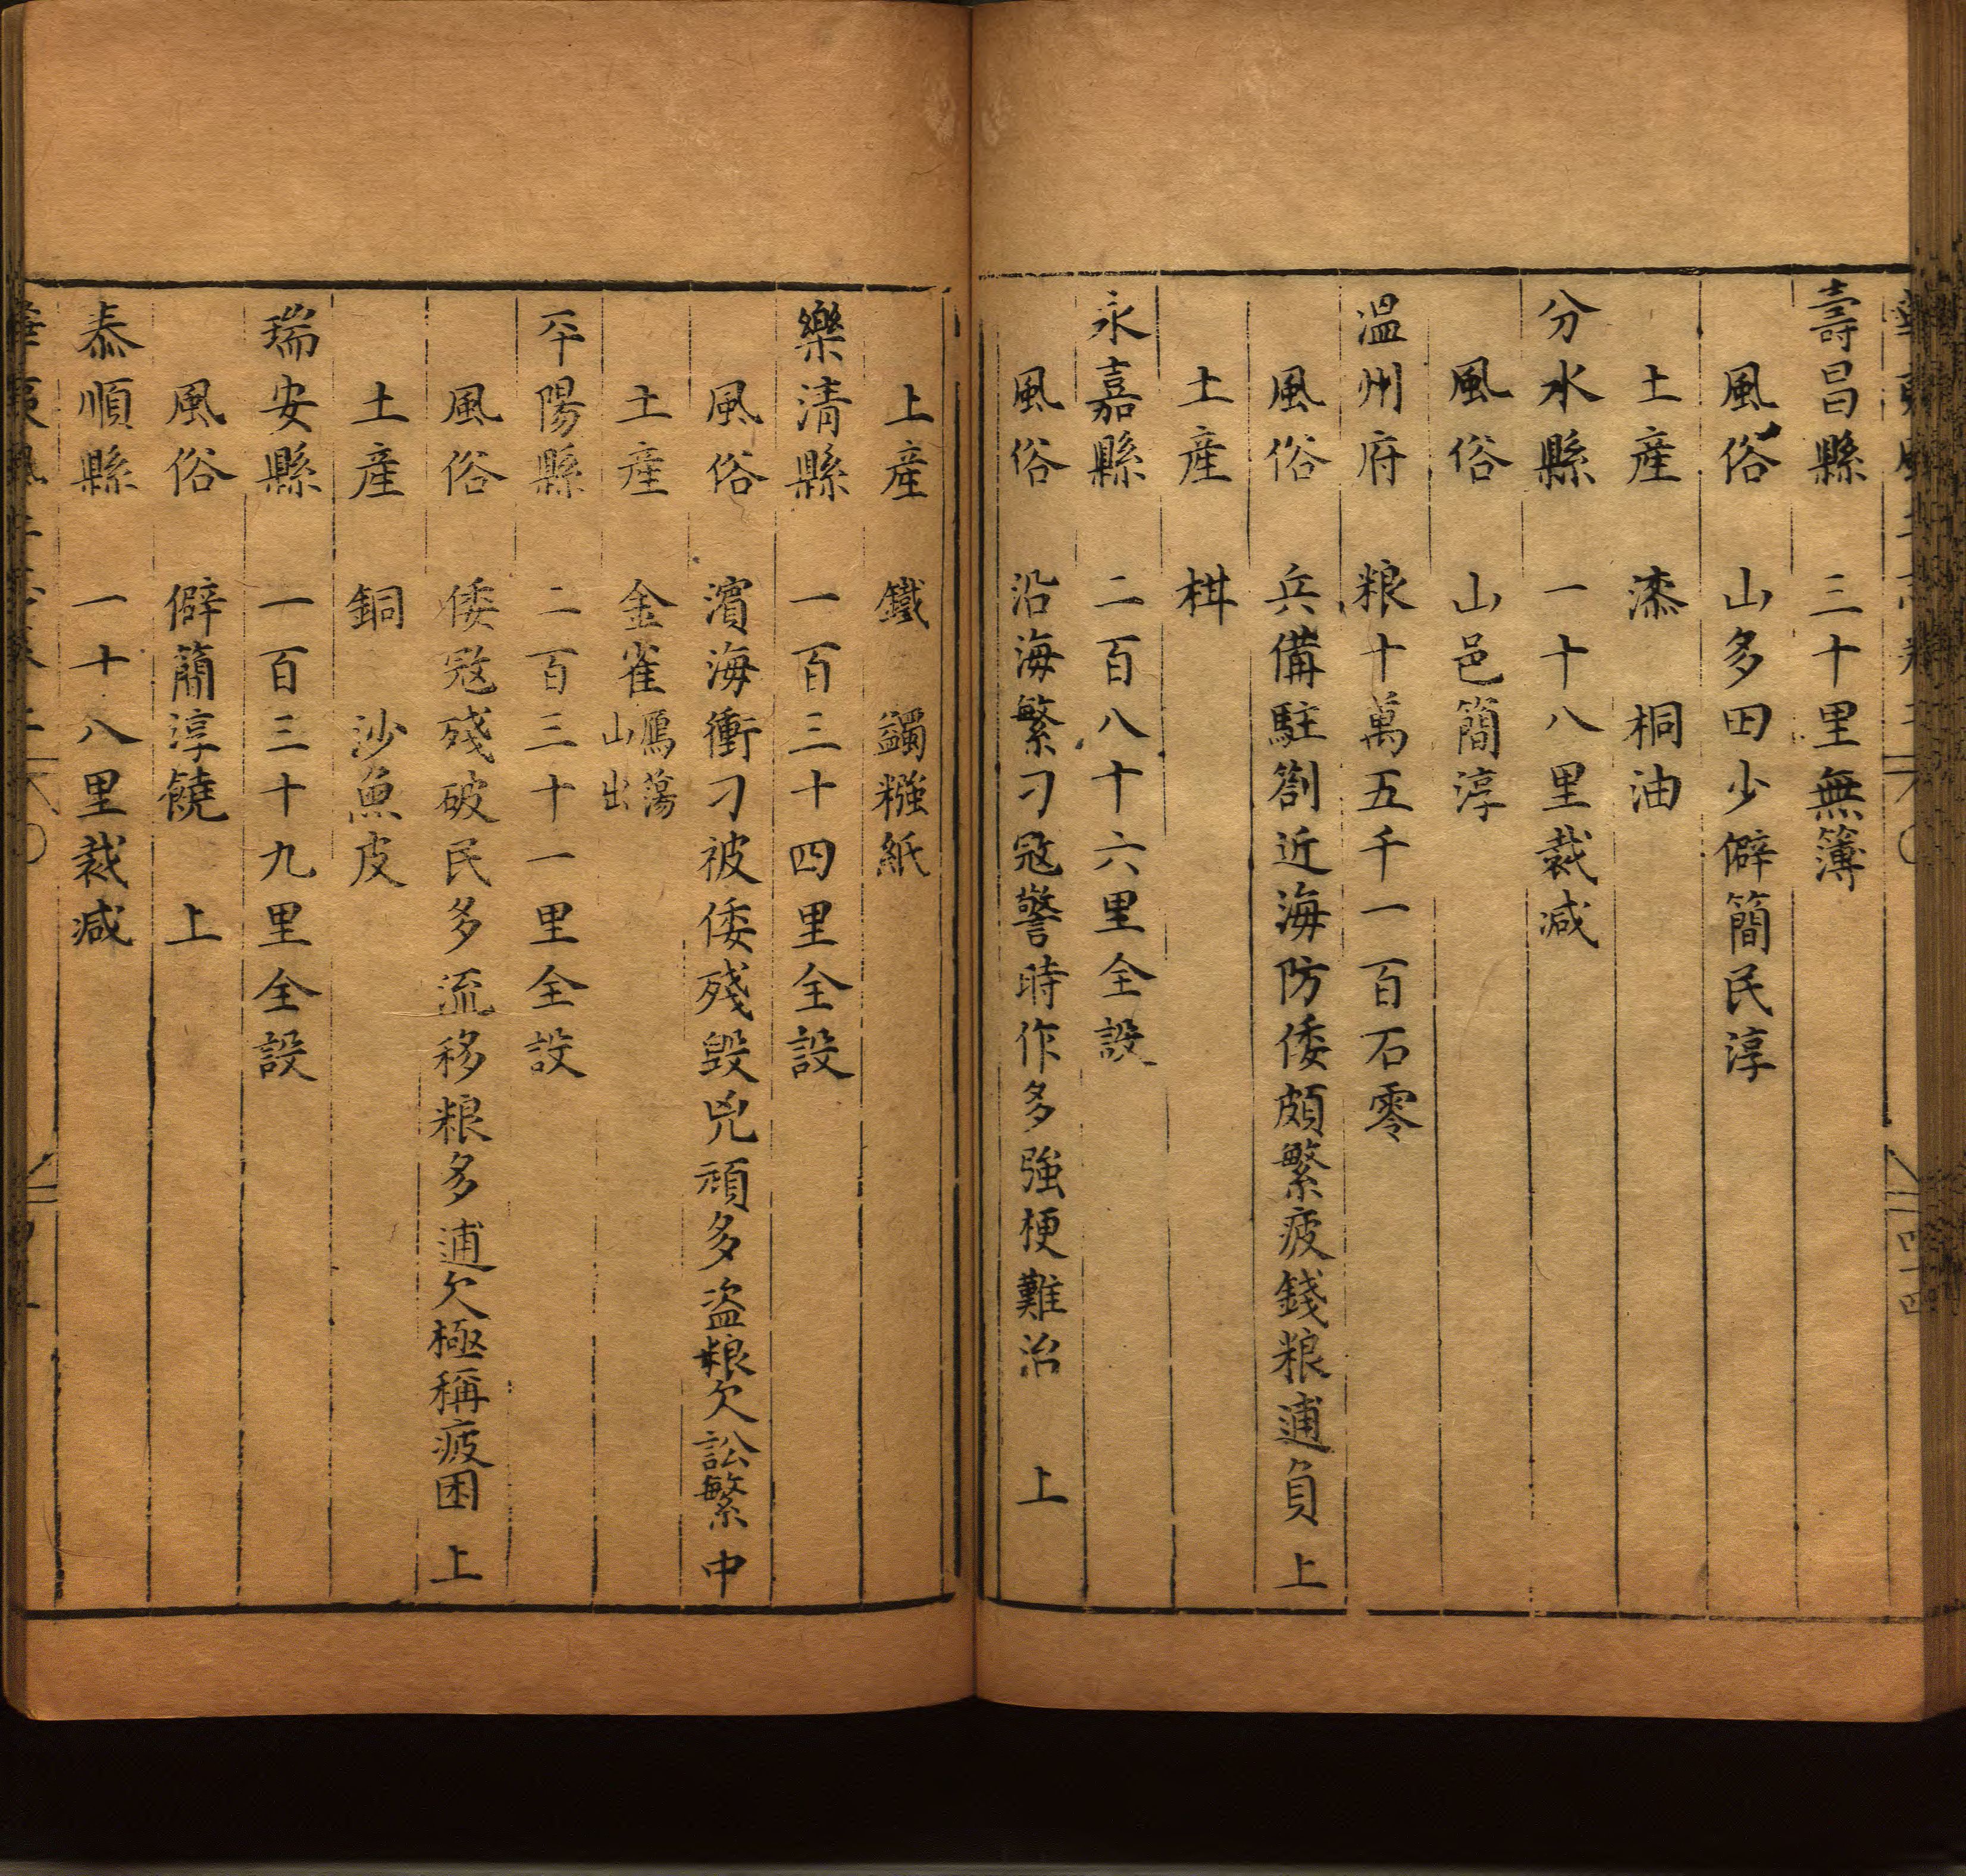 壽昌縣　三十里無簿
風俗　山多田少僻簡民淳
土産　漆　桐油
分水縣　一十八里裁减
風俗　山邑簡淳
溫州府　粮十萬五千一百石零
風俗　兵備駐劄近海防倭頗繁疲錢粮逋負　上
土産　柑
永嘉縣　二百八十六里全設
風俗　沿海繁刁寇警時作多強梗難治　上
上産　鐵　蠲糨紙
樂清縣　一百三十四里全設
風俗　濱海衝刁被倭殘毀兇頑多盗粮欠訟繁　中
土産　金雀鴈蕩山出
平陽縣　二百三十一里全設
風俗　倭寇殘破民多流移粮多逋欠極稱疲困　上
土産　銅　沙魚皮
瑞安縣　一百三十九里全設
風俗　僻簡淳饒　上
泰順縣　一十八里裁减